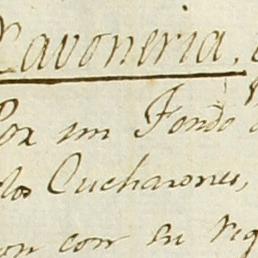 Xavoneria,
Por un Fondo
dos Cucharones,
con su